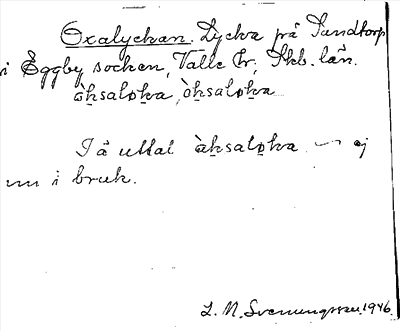 Oxalyckan. Lycka på Sandtorp
i Eggby socken, Valle Hr, Skb. län.
àksaløka, òksaløka
I ä uttal àksaløka ej
nu i bruk.
L. M. Svenungsson 1946